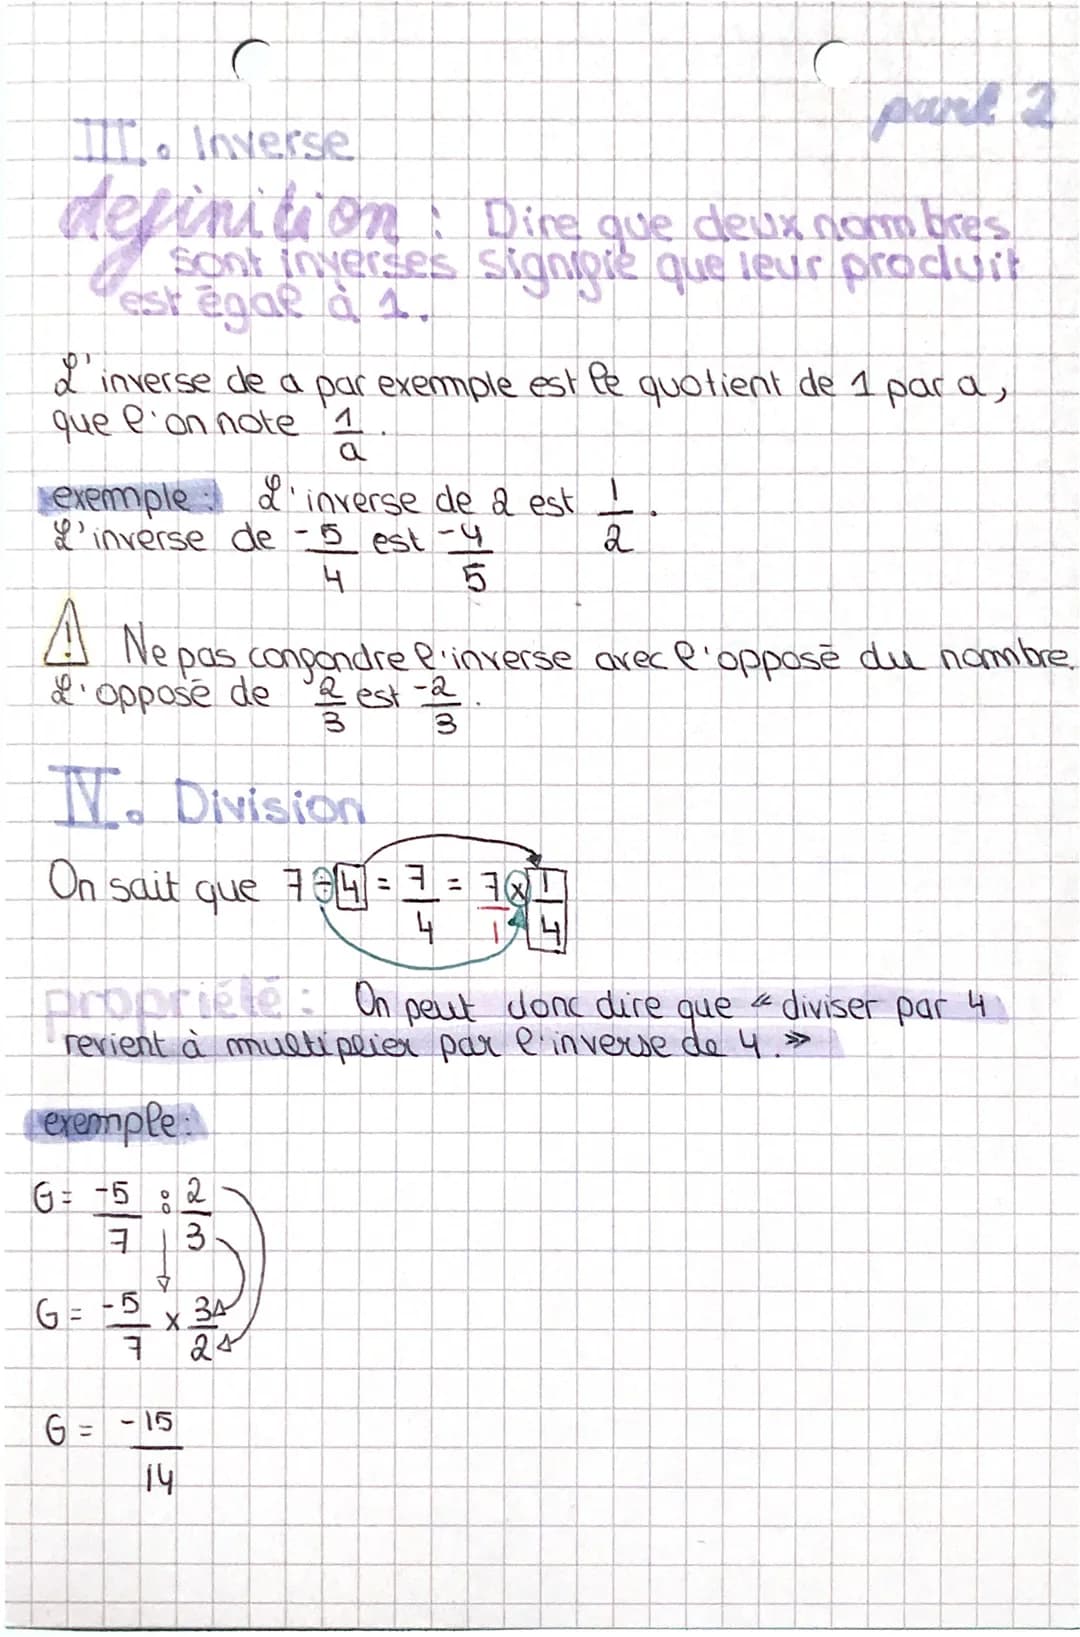 part 2
III. Inverse
definition : Dire que deux nombres
sont inverses signifie que leur produit
est égal à 1.
L'inverse de a par exemple est le quotient de 1 par a,
que l'on note 1/a.
exemple : L'inverse de 2 est 1/2.
L'inverse de -5/4 est -4/5
! Ne pas confondre l'inverse avec l'opposé du nombre.
L'opposé de 2/3 est -2/3.
IV. Division
On sait que 7 ÷ 4 = 7/4 = 7/1 × 1/4
propriété : On peut donc dire que « diviser par 4
revient à multiplier par l'inverse de 4. »
exemple :
G = -5/7 : 2/3
G = -5/7 × 3/2
G = -15/14